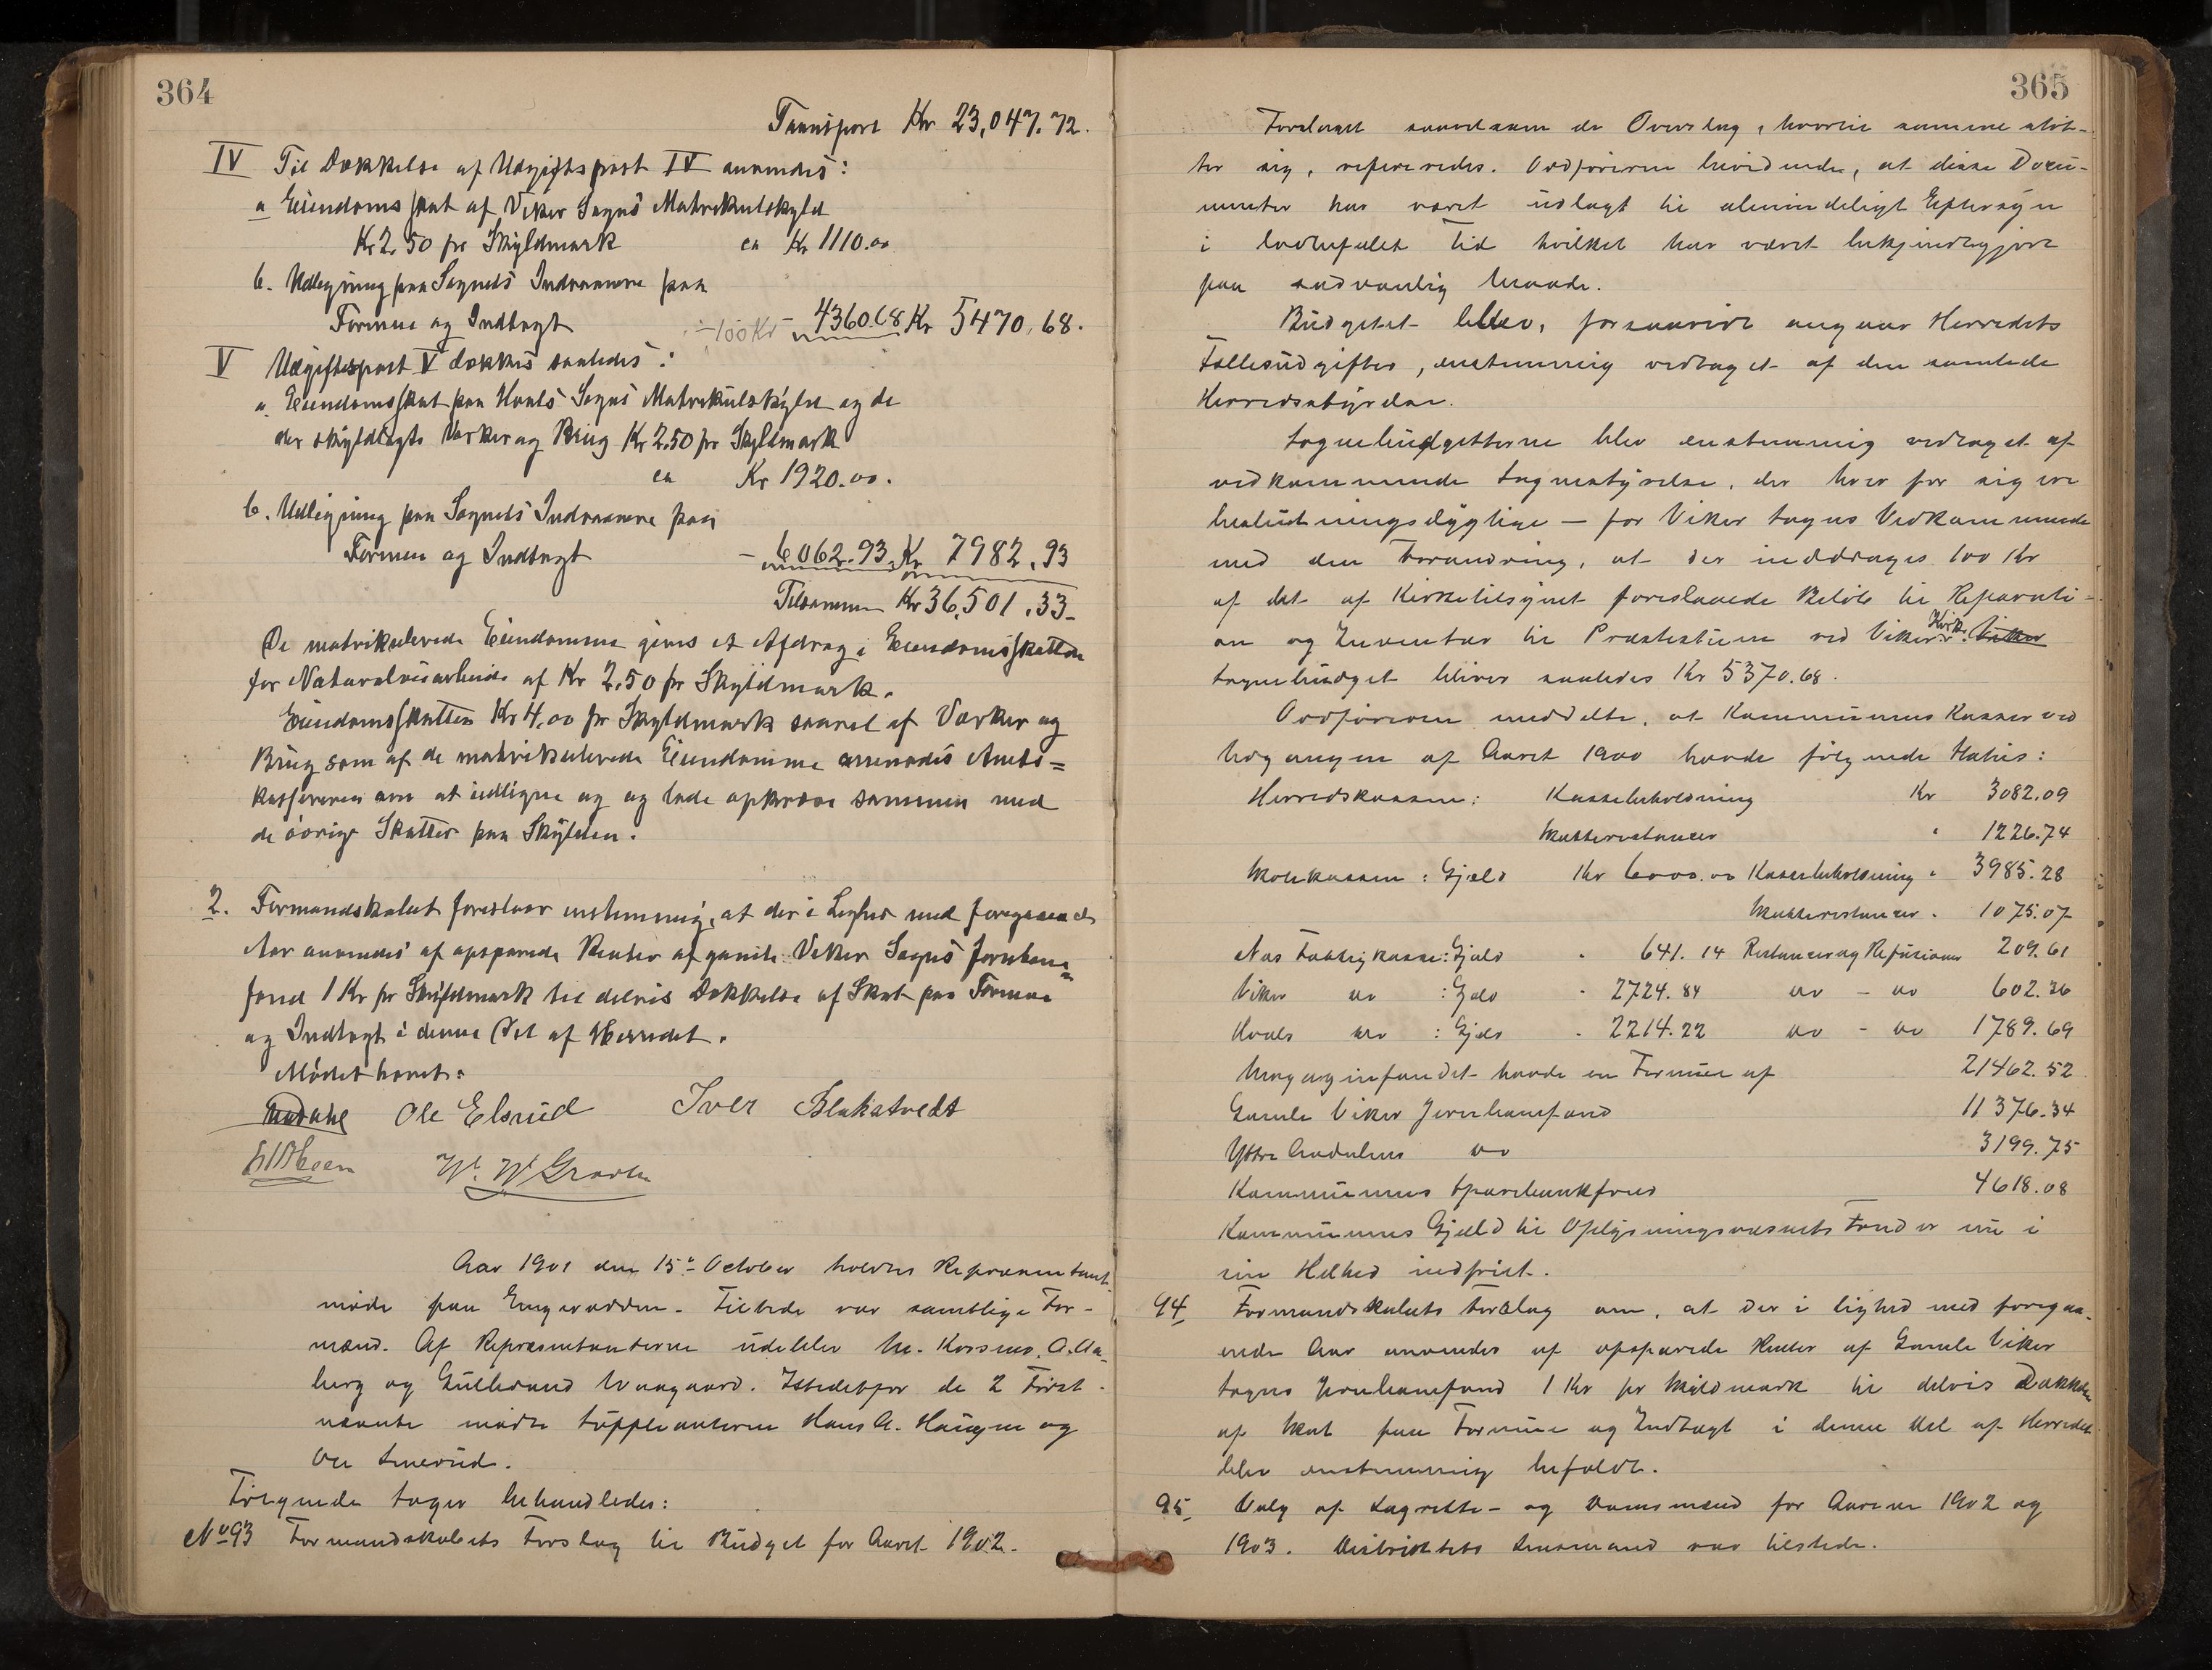 364
Transport Kr 23,047.72.
IV Til Dækkelse af Udgiftspost IV anvendes:
a Eiendomsskat af Viker Sogns Matrikulskyld
Kr 2.50 pr Skyldmark ca Kr 1110.00
b. Udligning paa Sognets Indvaanere paa
Formue og Indtægt ÷100 Kr - 4360.68 Kr 5470.68.
V Udgiftspost V dækkes saaledes:
a. Eiendomsskat paa Hovls Sogns Matrikulskyld og de
der skyldlagte Værker og Brug Kr 2.50 pr Skyldmark
ca Kr 1920.00.
b. Udligning paa Sognets Indvaanere paa
Formue og Indtægt - 6062.93 Kr 7982.93
Tilsammen Kr 36,501.33
De matrikulerede Eiendomme gives et Afdrag i Eiendomsskatten
for Naturalveiarbeide af Kr 2.50 pr Skyldmark.
Eiendomsskatten Kr 4,00 pr Skyldmark saavel af Værker og
Brug som af de matrikulerede Eiendomme anmodes Amts=
kassereren om at udligne og og lade opkræve sammen med
de øvrige Skatter paa Skylden.
2. Formandskabet foreslaar enstemmig, at der i Lighed med foregaaende
Aar anvendes af opsparede Renter af gamle Viker Sogns Jernbane=
fond 1 Kr pr Skyldmark til delvis Dækkelse af Skat paa Formue
og Indtægt i denne Del af Herredet.
Mødet hævet.
Ole Elsrud Iver Blakstvedt
Aar 1901 den 15de October holdtes Repræsentant
møde paa Engerodden. Tilstede var samtlige For-
mænd. Af Repræsentanterne udeblev M. Kossmo, A. Aa-
berg og Gulbrand Waagaard. Istedetfor de 2 Først-
nævnte mødte Suppleanterne Hans A. Haugen og
Ole Smerud.
Følgende Sager behandledes:
No 93 Formandskabets Forslag til Budget for Aaret 1902.
365
Forslaget saavelsom de Overslag, hvortil samme støt-
ter sig, refereredes. Ordføreren bevidnede, at disse Docu-
menter har været udlagt til almindeligt Eftersyn
i lovbefalet Tid hvilket har været bekjendtgjort
paa sædvanlig Maade.
Budgetet blev, forsaavidt angaar Herredets
Fællesudgifter, enstemmig vedtaget af den samlede
Herredsstyrelse.
Sognebudgetterne blev enstemmig vedtaget af
vedkommende Sognestyrelse, der hver for sig var
beslutningsdygtige — for Viker Sogns Vedkommende
med den Forandring, at der inddrages 100 Kr
af det af Kirketilsynet foreslaaede Beløb til Reparati-
on og Inventar til Præstestuen ved Viker Kirke. Viker
Sognebudget bliver saaledes Kr 5370.68.
Ordføreren meddelte, at Kommunens Kasser ved
Udgangen af Aaret 1900 havde følgende Status:
Herredskassen: Kassebeholdning Kr 3082.09
Skatterestancer " 1226.74
Skolekassen: Gjæld Kr 6000.00 Kassebeholdning " 3985.28
Skatterestancer " 1075.07
Næs Fattigkasse: Gjæld " 641.14 Restancer og Refusioner 209.61
Viker do : Gjæld " 2724.84 do - do 602.36
Hovls do : Gjæld " 2214.22 do - do 1789.69
Magazinfondet havde en Formue af 21462.52
Gamle Viker Jernbanefond 11376.34
Ytre Aadalens do 3199.75
Kommunens Sparebankfond 4618.08
Kommunens Gjæld til Oplysningsvæsenets Fond er nu i
sin Helhed indfriet.
94 Formandskabets Forslag om, at der i lighed med foregaa-
ende Aar anvendes af opsparede Renter af Gamle Viker
Sogns Jernbanefond 1 Kr pr Skyldmark til delvis Dækkelse
af Skat paa Formue og Indtægt i denne Del af Herredet
blev enstemmig bifaldt.
95. Valg af Lagrette- og Domsmænd for Aarene 1902 og
1903. Distriktets Lensmand var tilstede.